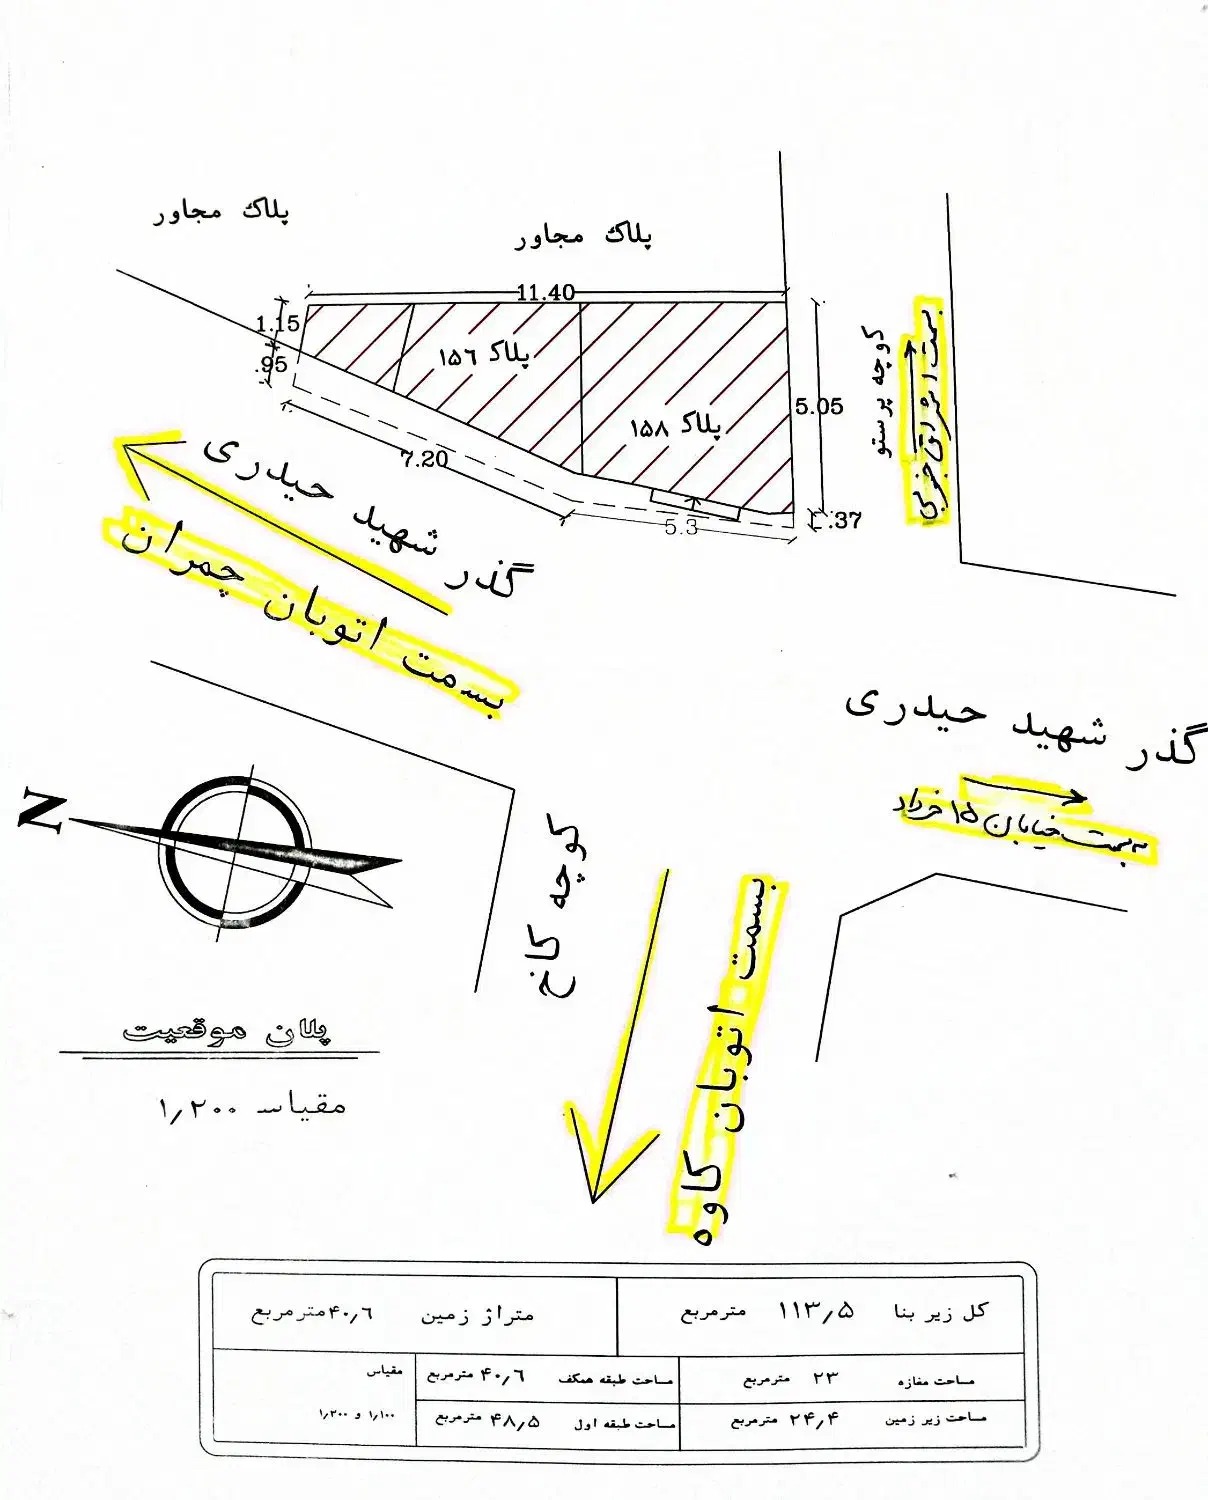 پلاک مجاور
پلاک مجاور
11.40
1.15
.95
پلاک ۱۵۶
پلاک ۱۵۸
کوچه پرستو
بسمت اشراق جنوبی
5.05
7.20
5.3
.37
گذر شهید حیدری
بسمت اتوبان چمران
گذر شهید حیدری
بسمت خیابان ۱۵ خرداد
N
کوچه کاخ
بسمت اتوبان کاوه
پلان موقعیت
مقیاس ۱٫۲۰۰
کل زیر بنا ۱۱۳٫۵ مترمربع
متراژ زمین ۴۰٫۶ مترمربع
ساحت مغازه ۲۳ مترمربع
مساحت طبقه همکف ۴۰٫۶ مترمربع
مقیاس
مساحت زیر زمین ۲۴٫۴ مترمربع
مساحت طبقه اول ۴۸٫۵ مترمربع
۱٫۱۰۰ و ۱٫۲۰۰